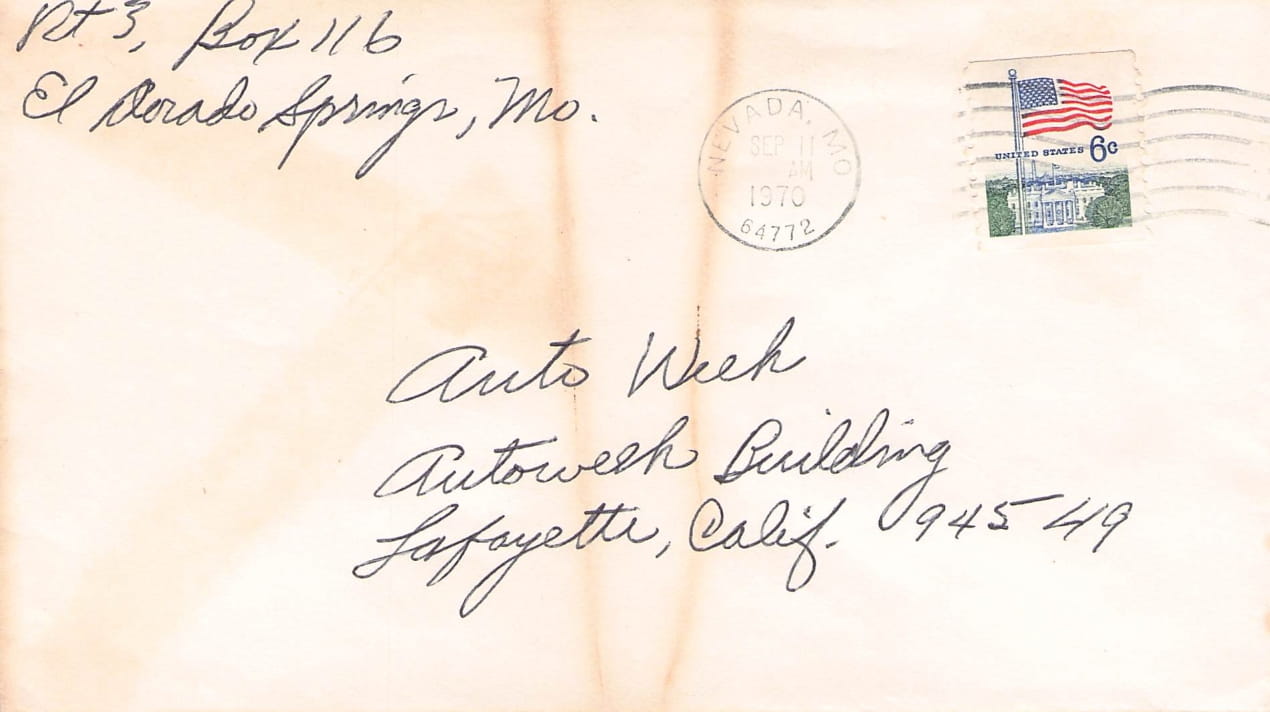 Rt 3, Box 116
El Dorado Springs, Mo.
NEVADA, MO
SEP 11
AM
1970
64772
UNITED STATES 6c
Auto Week
Autoweek Building
Lafayette, Calif. 94549